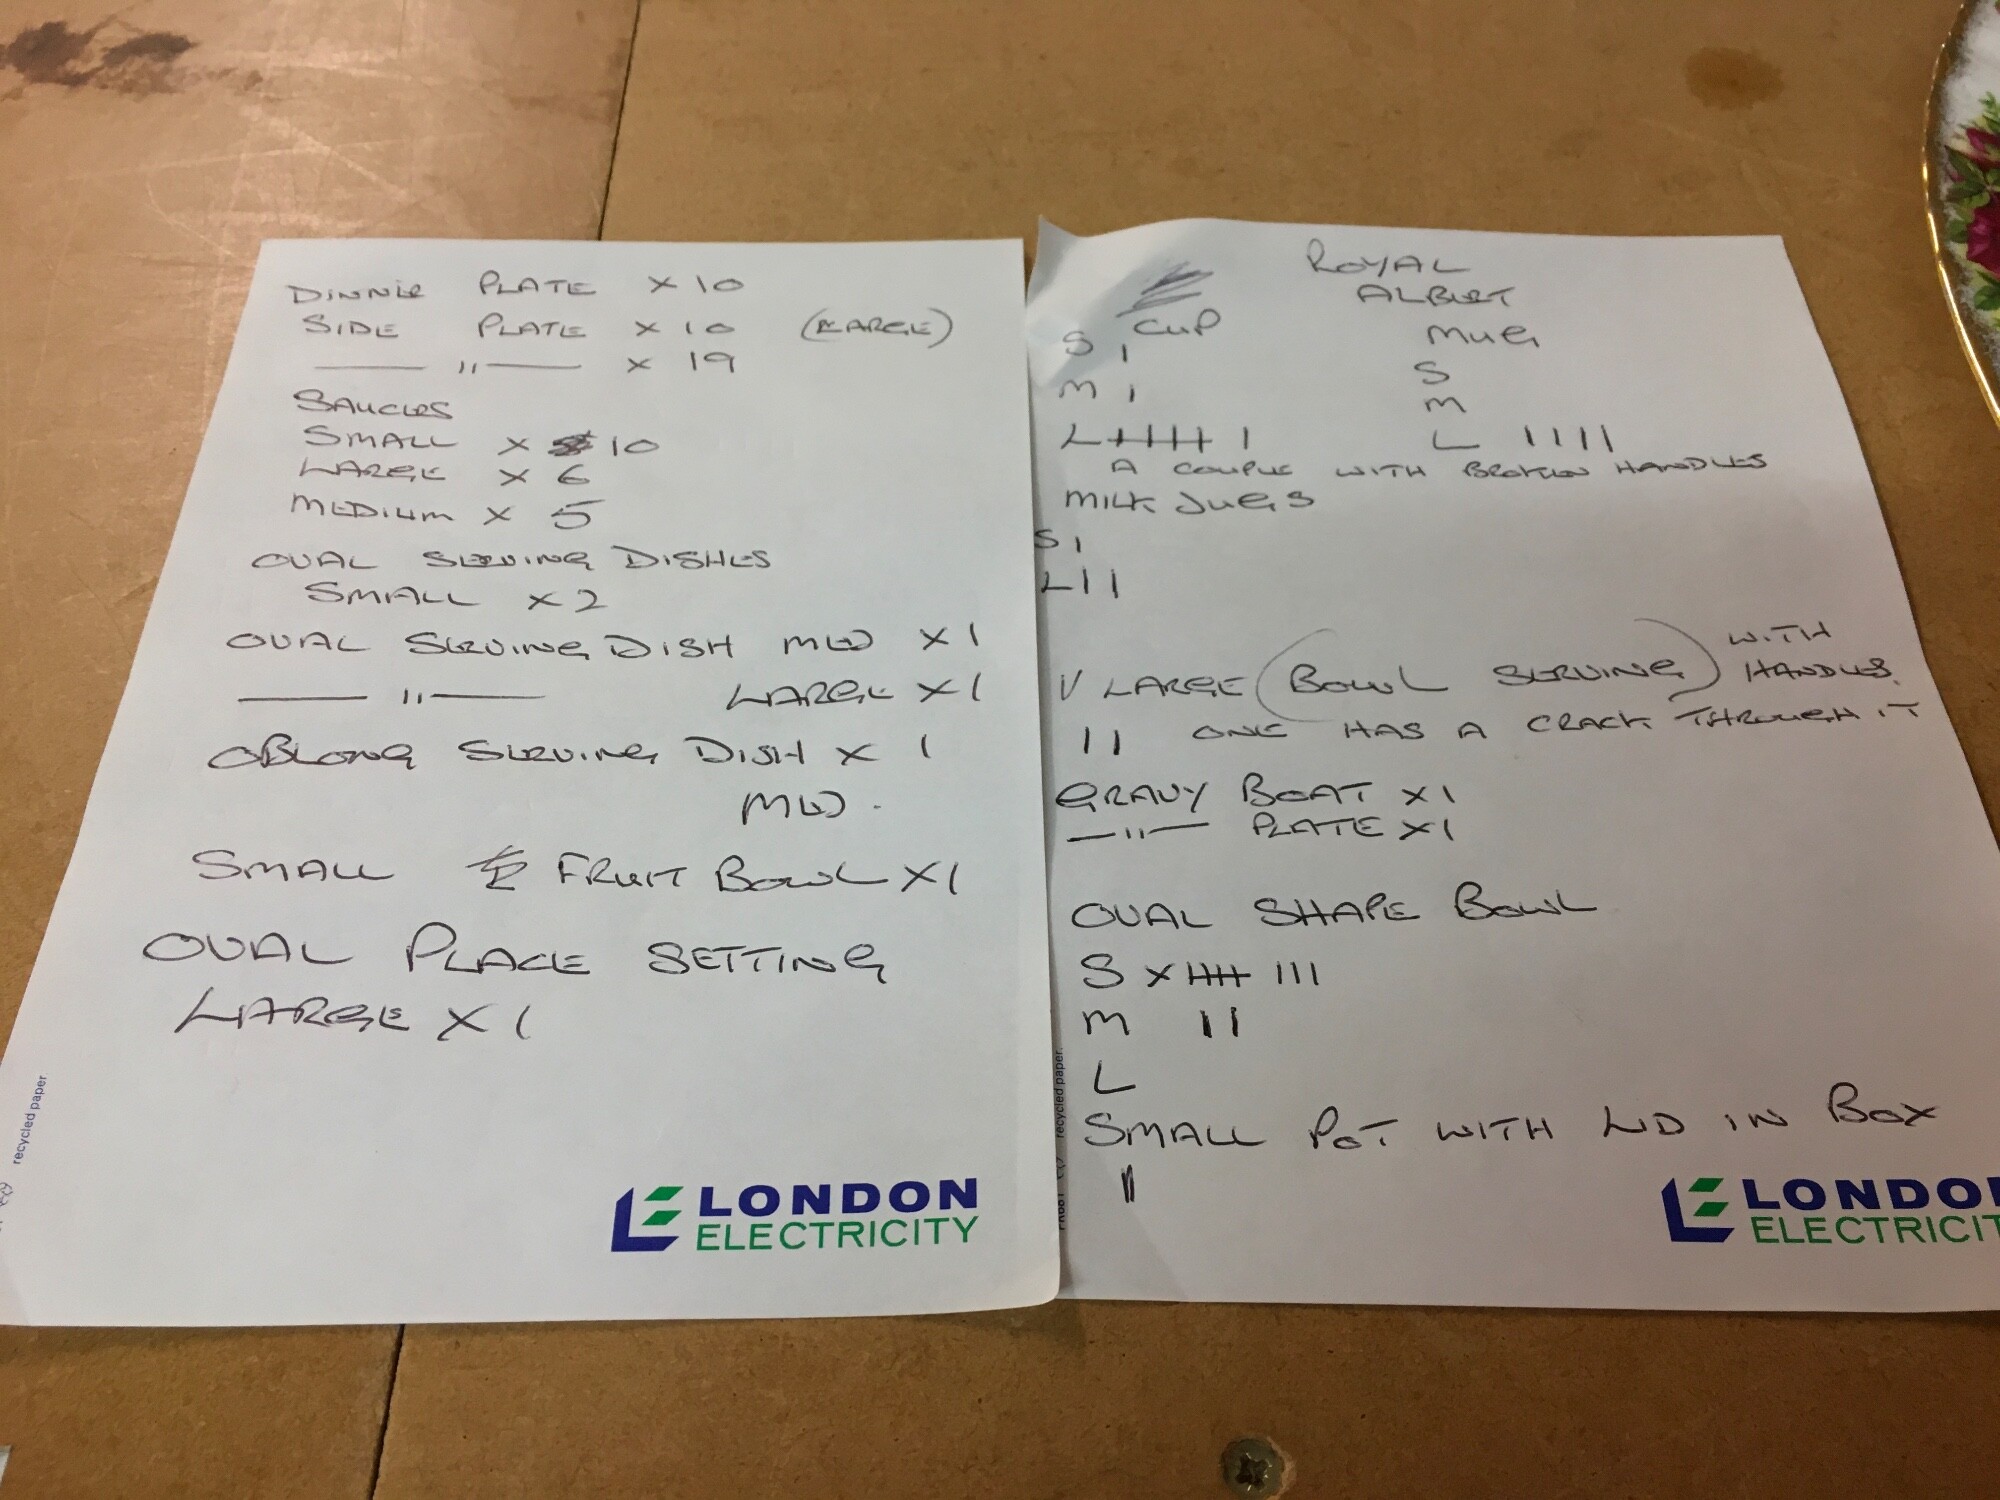 DINNER PLATE X 10
SIDE PLATE X 10 (LARGE)
— " — X 19
SAUCERS
SMALL X 10
LARGE X 6
MEDIUM X 5
OVAL SERVING DISHES
SMALL X 2
OVAL SERVING DISH MED X 1
— " — LARGE X 1
OBLONG SERVING DISH X 1
MED.
SMALL FRUIT BOWL X 1
OVAL PLACE SETTING
LARGE X 1
recycled paper
LONDON
ELECTRICITY
ROYAL
ALBERT
CUP MUG
S I S
M I M
L IIIII I L IIII
A COUPLE WITH BROKEN HANDLES
MILK JUGS
S I
L I I
V LARGE (BOWL SERVING) WITH
HANDLES.
I I ONE HAS A CRACK THROUGH IT
GRAVY BOAT X 1
— " — PLATE X 1
OVAL SHAPE BOWL
S X IIII III
M II
L
SMALL POT WITH LID IN BOX
II
recycled paper.
LONDO
ELECTRICIT